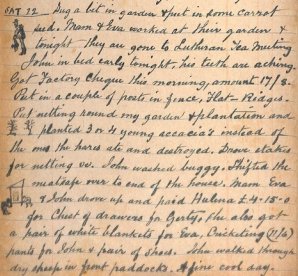 SAT 22 Dug a bit in garden & put in some carrot
seed. Mam & Eva worked at their garden &
tonight they are gone to Lutheran Tea Meeting
John in bed early tonight, his teeth are aching.
Got Factory Cheque this morning, amount 17/8-
Put in a couple of posts in fence, Flat-Ridges.
Put netting round my garden & plantation and
planted 3 or 4 young accacia's instead of
the ones the hares ate and destroyed. Drove stakes
for netting &c. John washed buggy. Shifted the
meatsafe over to end of the house. Mam Eva
& John drove up and paid Hulena £4-15-0
for Chest of drawers for Gerty, She also got
a pair of white blankets for Eva, Cricketing (11/6)
pants for John & pair of shoes. John walked through
dry sheep in front paddocks. A fine cool day.